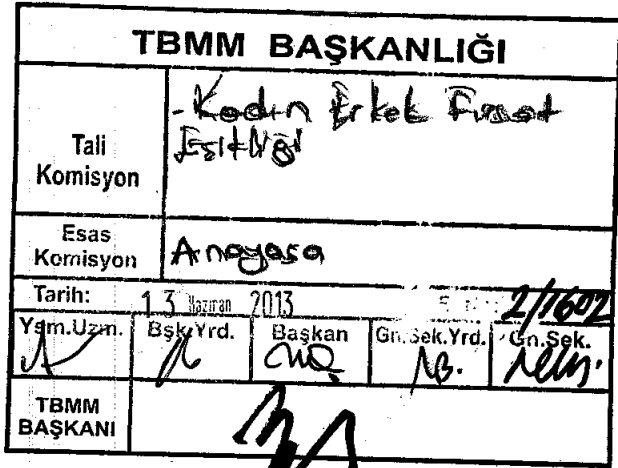 TBMM BAŞKANLIĞI
Tali
Komisyon
- Kadın Erkek Fırsat
Eşitliği
Esas
Komisyon
Anayasa
Tarih: 13 Haziran 2013 2/1602
Ysm.Uzm. Bşk.Yrd. Başkan Gn.Sek.Yrd. Gn.Sek.
TBMM
BAŞKANI